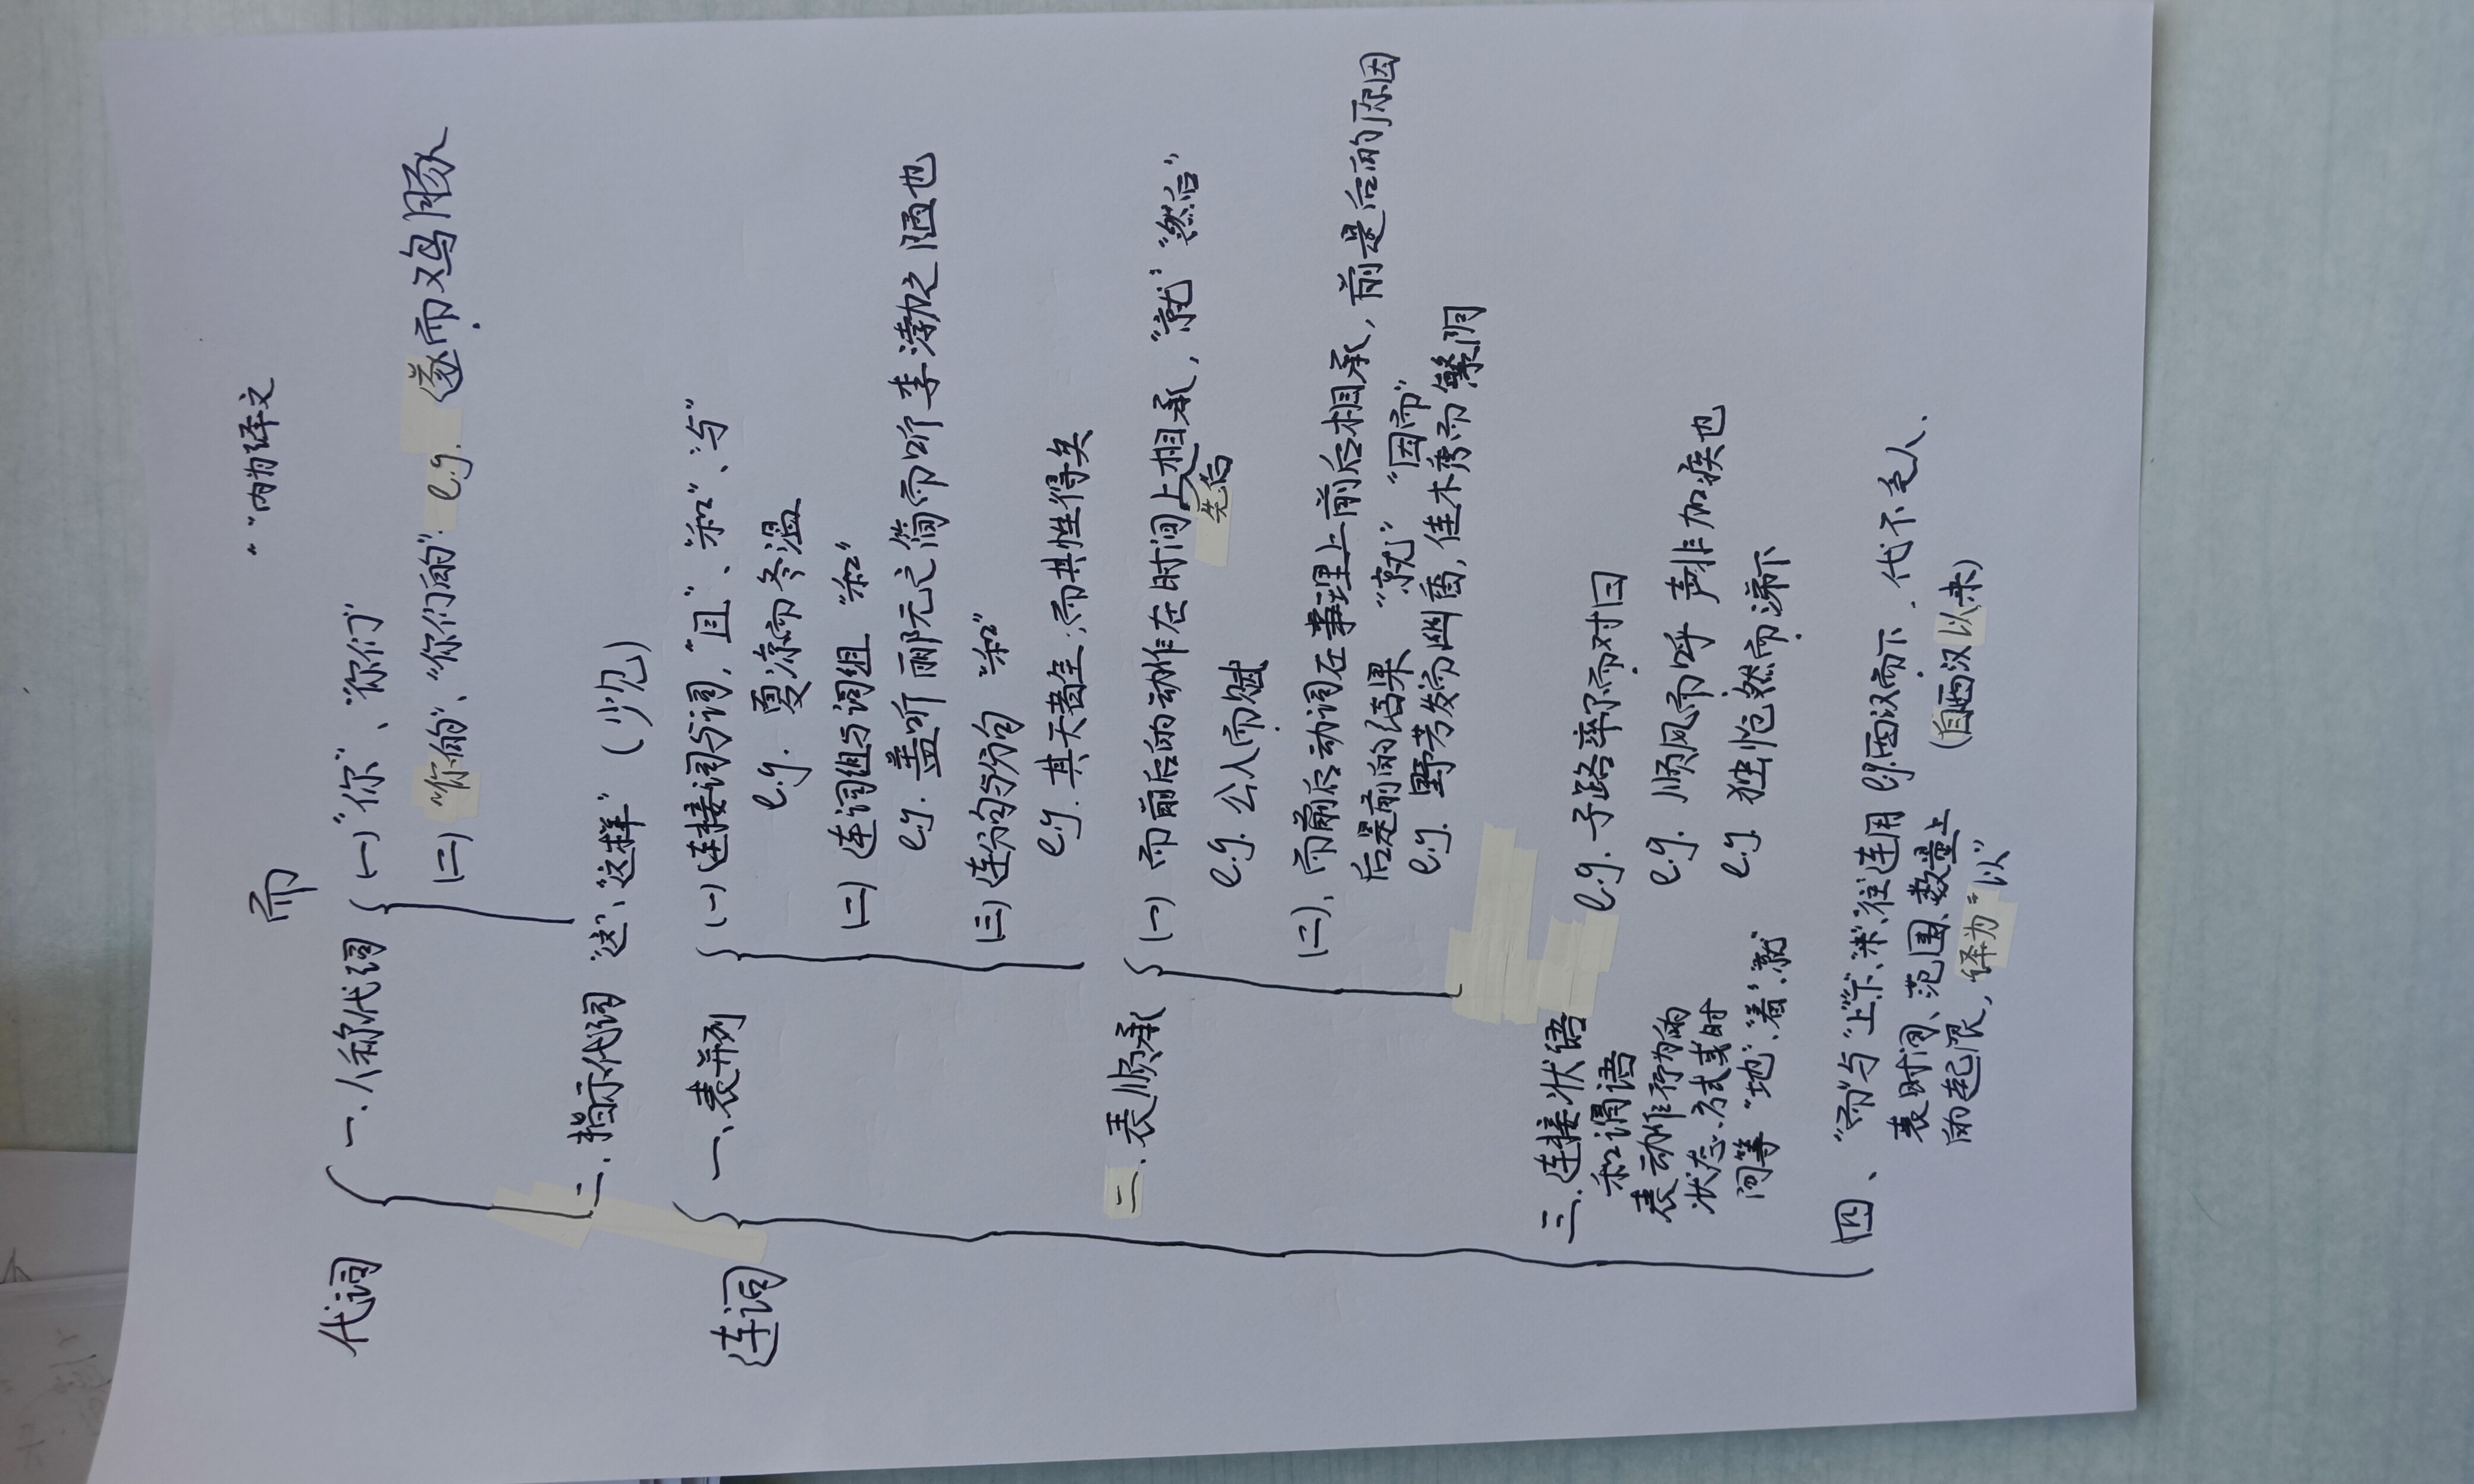 而
“”内为译文
代词
一.人称代词
(一)“你”、“你们”
(二)“你的”、“你们的”: e.g. 遂而又鸡豚
二.指示代词 “这”、“这样” (少见)
连词
一、表并列
(一)连接词与词,“且”、“和”、“与”
e.g. 夏凉而冬温
(二)连词组与词组 “和”
e.g. 盖叹郦元之简而叹李渤之陋也
(三)连分句与分句 “和”
e.g. 其天者全,而其性得矣
二.表顺承
(一)而前后的动作在时间上相承,“就”“然后”
先后
e.g. 公入而赋
(二)、而前后动词在事理上前后相承,前是后的原因
后是前的结果 “就” “因而”
e.g. 野芳发而幽香,佳木秀而繁阴
三.连接状语
和谓语
表动作行为的
状态、方式或时
间等 “地”“着”“就
e.g. 子路率尔而对曰
e.g. 顺风而呼 声非加疾也
e.g. 独怆然而涕下
四、“而”与“上”“下”“来”“往”连用 e.g.西汉而下.代不乏人.
表时间、范围、数量上 (自西汉以来)
的起限,译为“以”